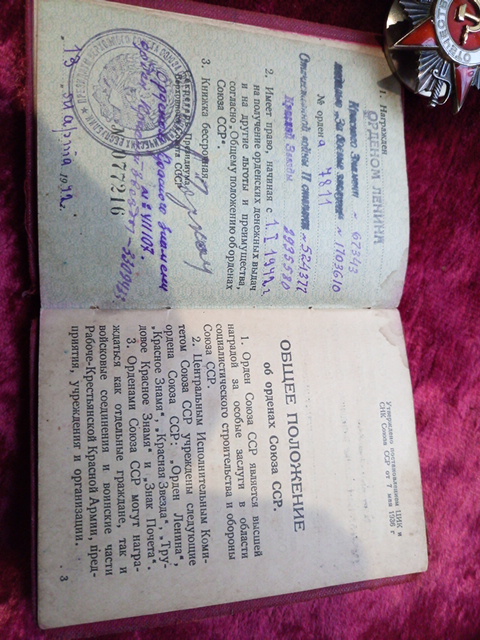 1. Награжден
ОРДЕНОМ ЛЕНИНА
№ ордена 7811
Красного Знамени - 67343
медалью „За боевые заслуги" № 1703610
Отечественной войны II степени № 524377
Красной Звезды 2935580
2. Имеет право, начиная с 1.I 1942 г.
на получение орденских денежных выдач
и на другие льготы и преимущества,
согласно „Общему положению об орденах
Союза ССР".
3. Книжка бессрочная.
Президиума
Союза ССР
№ 077216
13 марта 1942 г.
Утверждено постановлением ЦИК и
СНК Союза ССР от 7 мая 1936 г
ОБЩЕЕ ПОЛОЖЕНИЕ
об орденах Союза ССР.
1. Орден Союза ССР является высшей
наградой за особые заслуги в области
социалистического строительства и обороны
Союза ССР.
2. Центральным Исполнительным Коми-
тетом Союза ССР учреждены следующие
ордена Союза ССР: „Орден Ленина",
„Красное Знамя", „Красная Звезда", „Тру-
довое Красное Знамя" и „Знак Почета".
3. Орденами Союза ССР могут награ-
ждаться как отдельные граждане, так и
войсковые соединения и воинские части
Рабоче-Крестьянской Красной Армии, пред-
приятия, учреждения и организации.
3